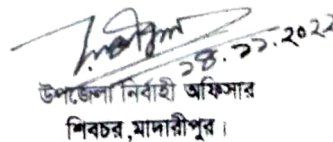 ২৪.১১.২০২২
উপজেলা নির্বাহী অফিসার
শিবচর, মাদারীপুর।